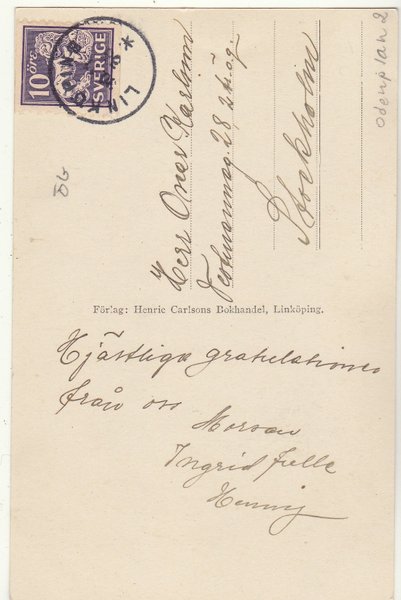 10 öre
SVERIGE
LINKÖPING
Herr Onar Karlsson
28 2 tr. ög.
Stockholm
Odenplan 2
Förlag: Henric Carlsons Bokhandel, Linköping.
Hjärtliga gratulationer
från oss
Morsan
Ingrid Julle
Henning